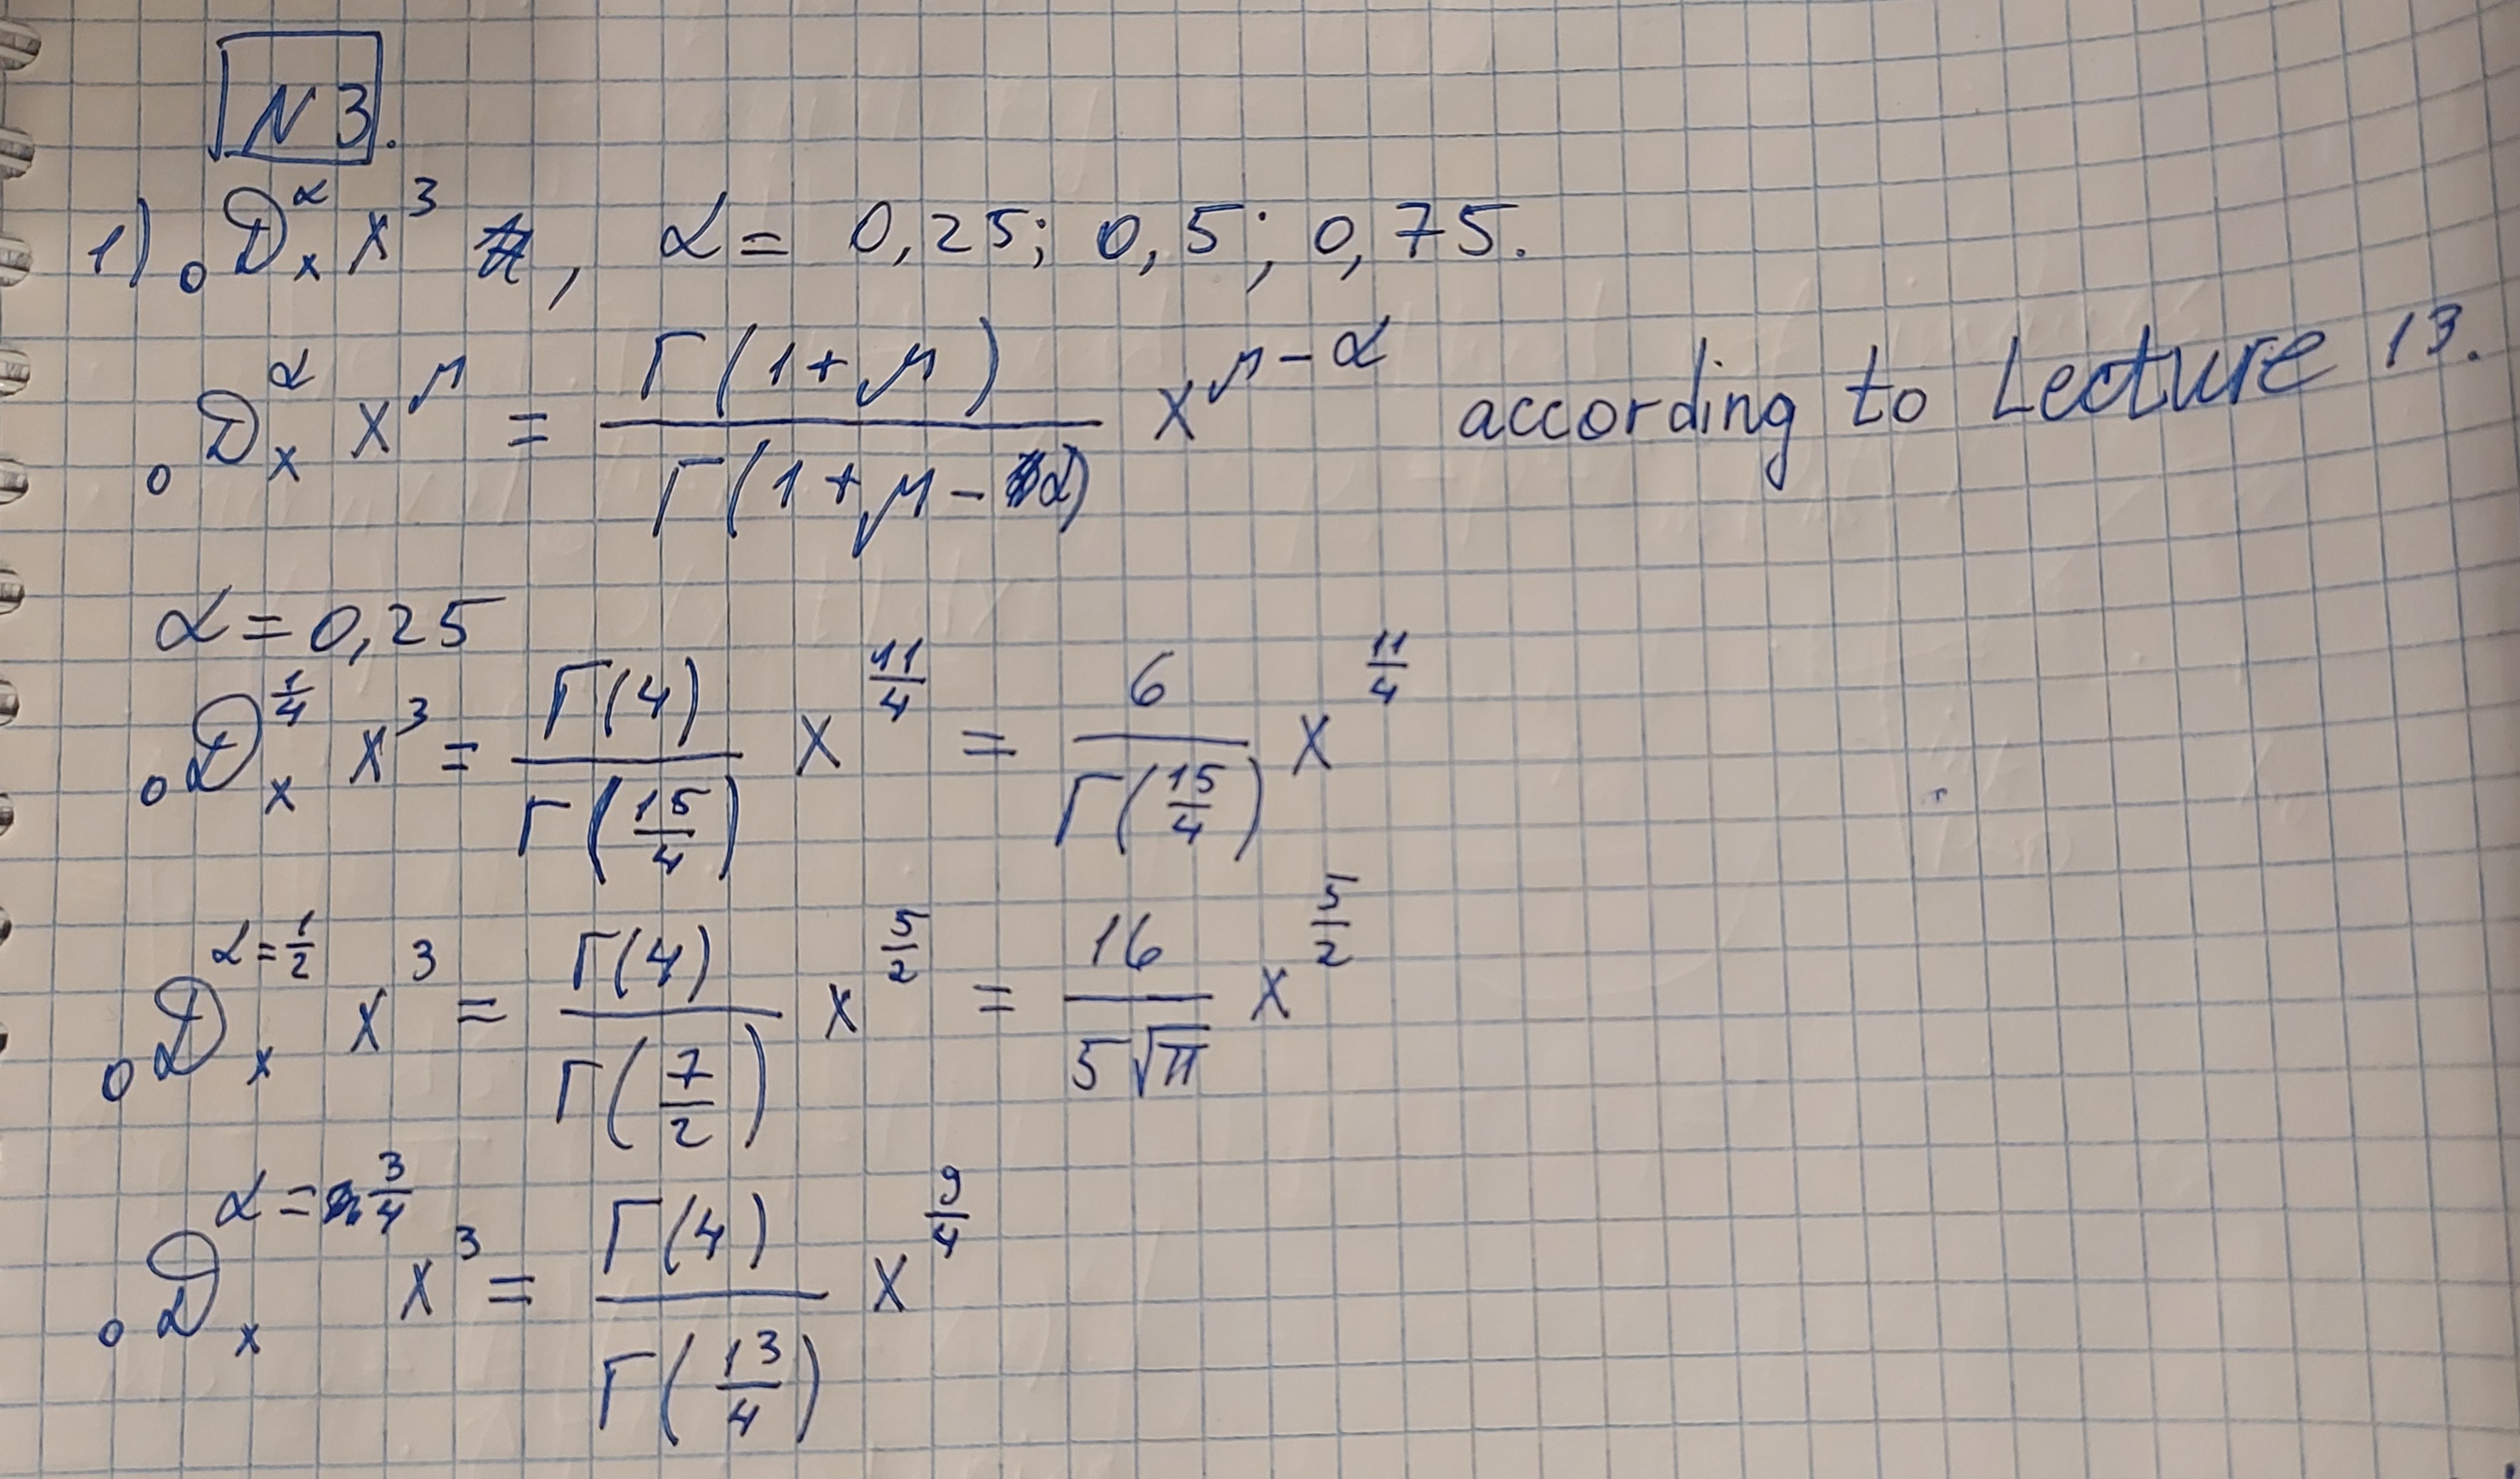 N 3.
1) ₀D_x^α x^3 , α = 0,25; 0,5; 0,75.
₀D_x^α x^μ = Γ(1+μ)/Γ(1+μ-α) x^(μ-α) according to Lecture 13.
α = 0,25
₀D_x^(1/4) x^3 = Γ(4)/Γ(15/4) x^(11/4) = 6/Γ(15/4) x^(11/4)
₀D_x^(α=1/2) x^3 = Γ(4)/Γ(7/2) x^(5/2) = 16/(5√π) x^(5/2)
₀D_x^(α=3/4) x^3 = Γ(4)/Γ(13/4) x^(9/4)